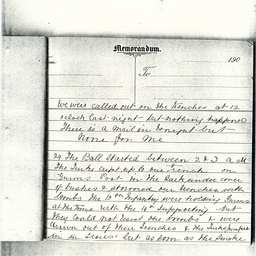 Memorandum.
190
To
We were called out in the trenches at 12
oclock last night but nothing happened
There is a mail in tonight but
None for Me
29 The Ball Started between 2 & 3 a.m.
The Turks crept up to our Trench on
Quinns Post in the Dark under cover
of bushes & stormed our trenches with
bombs. The 13th Infantry were holding Quinns
at the time with the 15th supporting but
they could not resist the bombs & were
driven out of their trenches &
in the lines but as soon as the